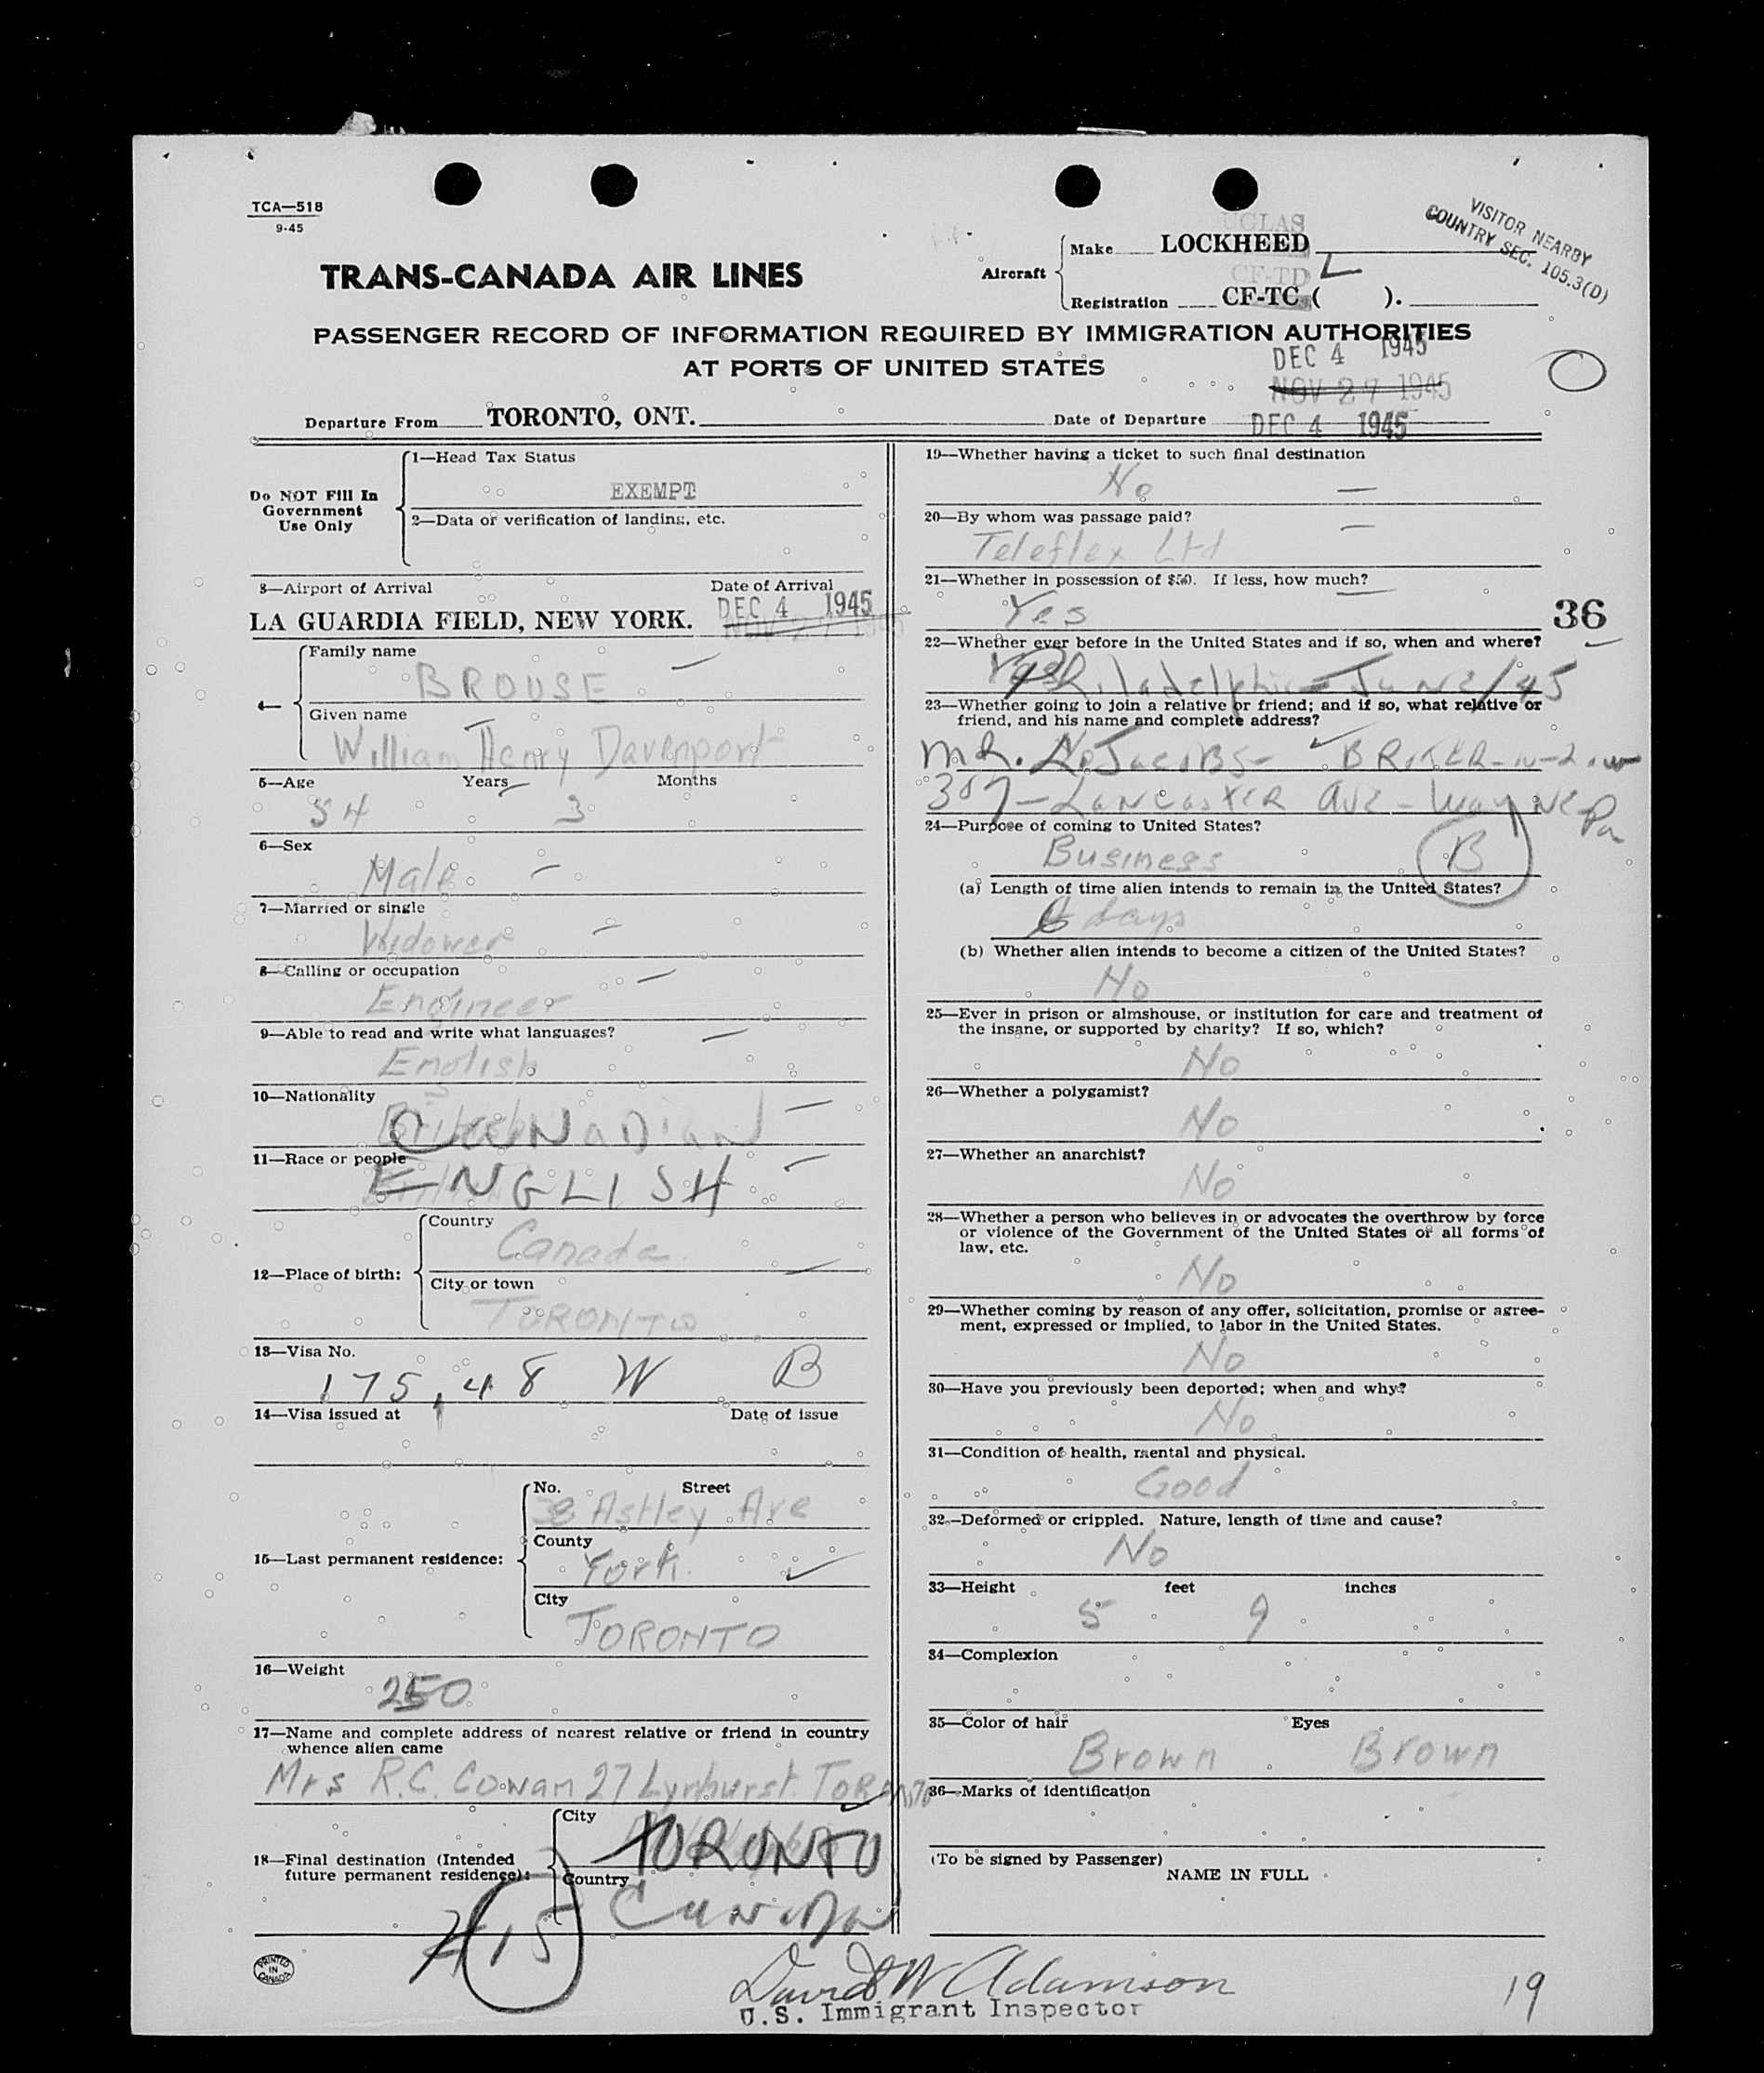 TCA—518
9-45
VISITOR NEARBY
COUNTRY SEC. 105.3(D)
UGLAS
Aircraft
Make LOCKHEED
CF-TD L
Registration CF-TC ( ).
TRANS-CANADA AIR LINES
PASSENGER RECORD OF INFORMATION REQUIRED BY IMMIGRATION AUTHORITIES
AT PORTS OF UNITED STATES
DEC 4 1945
NOV 27 1945
Departure From TORONTO, ONT. Date of Departure DEC 4 1945
Do NOT Fill In
Government
Use Only
1—Head Tax Status
EXEMPT
2—Data or verification of landing, etc.
3—Airport of Arrival Date of Arrival
LA GUARDIA FIELD, NEW YORK. DEC 4 1945
NOV 27 1945
4— Family name
BROUSE
Given name
William Henry Davenport
5—Age Years Months
54 3
6—Sex
Male
7—Married or single
Widower
8—Calling or occupation
Engineer
9—Able to read and write what languages?
English
10—Nationality
CANADIAN
11—Race or people
ENGLISH
12—Place of birth:
Country
Canada
City or town
TORONTO
13—Visa No.
175,48 W B
14—Visa issued at Date of issue
15—Last permanent residence:
No. Street
38 Astley Ave
County
York
City
TORONTO
16—Weight
250
17—Name and complete address of nearest relative or friend in country
whence alien came
Mrs R.C. Cowan 27 Lynhurst. TORONTO
18—Final destination (Intended
future permanent residence):
City
TORONTO
Country
CANADA
# 15
19—Whether having a ticket to such final destination
No
20—By whom was passage paid?
Teleflex Ltd
21—Whether in possession of $50. If less, how much?
Yes
36
22—Whether ever before in the United States and if so, when and where?
Yes Philadelphia - June/45
23—Whether going to join a relative or friend; and if so, what relative or
friend, and his name and complete address?
MR. Jacobs - BROTHER-IN-LAW
307 - LANCASTER AVE - WAYNE Pa
24—Purpose of coming to United States?
Business B
(a) Length of time alien intends to remain in the United States?
6 days
(b) Whether alien intends to become a citizen of the United States?
No
25—Ever in prison or almshouse, or institution for care and treatment of
the insane, or supported by charity? If so, which?
No
26—Whether a polygamist?
No
27—Whether an anarchist?
No
28—Whether a person who believes in or advocates the overthrow by force
or violence of the Government of the United States or all forms of
law, etc.
No
29—Whether coming by reason of any offer, solicitation, promise or agree-
ment, expressed or implied, to labor in the United States.
No
30—Have you previously been deported; when and why?
No
31—Condition of health, mental and physical.
Good
32.—Deformed or crippled. Nature, length of time and cause?
No
33—Height feet inches
5 9
34—Complexion
35—Color of hair Eyes
Brown Brown
36—Marks of identification
(To be signed by Passenger)
NAME IN FULL
PRINTED
IN
CANADA
David W Adamson
U.S. Immigrant Inspector
19